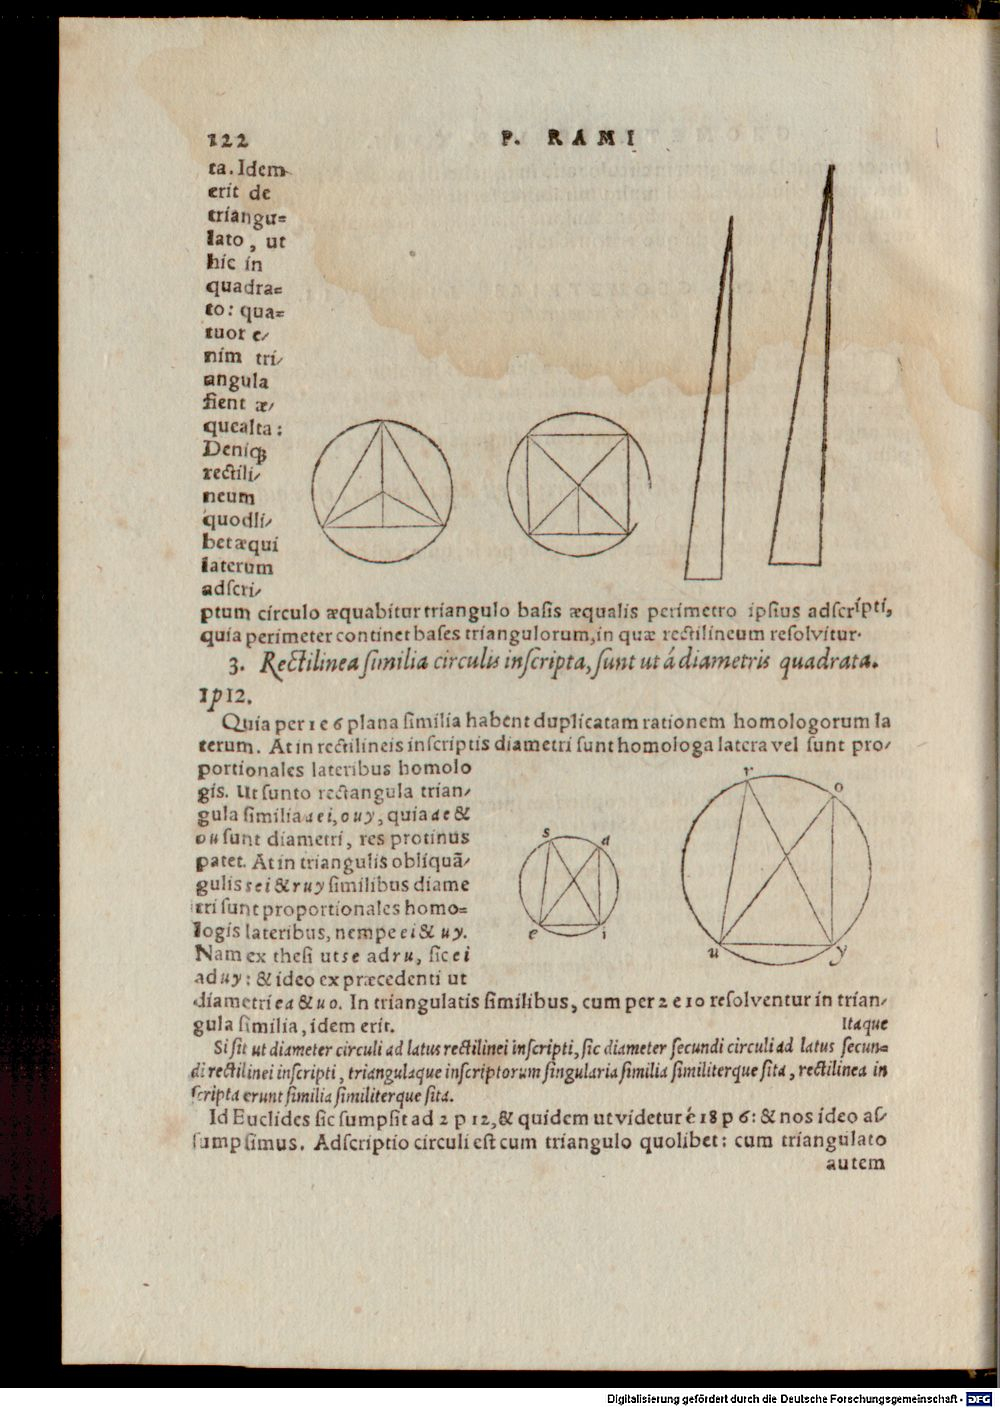 122 P. RAMI
ta. Idem
erit de
triangu=
lato, ut
hic in
quadra=
to: qua=
tuor e/
nim tri/
angula
fient æ/
quealta:
Deniqꝫ
rectili/
neum
quodli/
bet æqui
laterum
adscri/
ptum circulo æquabitur triangulo basis æqualis perimetro ipsius adscripti,
quia perimeter continet bases triangulorum, in quæ rectilineum resolvitur.
3. Rectilinea similia circulis inscripta, sunt ut á diametris quadrata.
1 p 12.
Quia per 1 e 6 plana similia habent duplicatam rationem homologorum la
terum. At in rectilineis inscriptis diametri sunt homologa latera vel sunt pro/
portionales lateribus homolo
gis. Ut sunto rectangula trian/
gula similia a e i, o u y, quia a e &
o u sunt diametri, res protinus
patet. At in triangulis obliquã/
gulis s e i & r u y similibus diame
tri sunt proportionales homo=
logis lateribus, nempe e i & u y.
Nam ex thesi ut s e ad r u, sic e i
ad u y: & ideo ex præcedenti ut
diametri e a & u o. In triangulatis similibus, cum per 2 e 10 resolventur in trian/
gula similia, idem erit.
Itaque
Si sit ut diameter circuli ad latus rectilinei inscripti, sic diameter secundi circuli ad latus secun=
di rectilinei inscripti, triangulaque inscriptorum singularia similia similiterque sita, rectilinea in
scripta erunt similia similiterque sita.
Id Euclides sic sumpsit ad 2 p 12, & quidem ut videtur é 18 p 6: & nos ideo as/
sumpsimus. Adscriptio circuli est cum triangulo quolibet: cum triangulato
autem
s a e i
r o u y
Digitalisierung gefördert durch die Deutsche Forschungsgemeinschaft - DFG